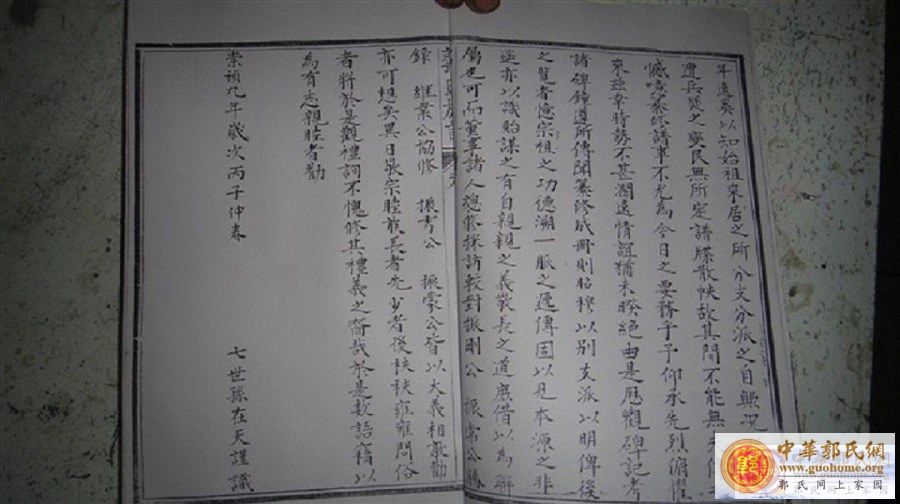 年遠矣以知始祖來居之所分支分派之自興況
遭兵燹之變民無所定譜牒散帙故其間不能無
憾嗚纂修譜事不尤為今日之要務乎予仰承先烈俯惟
來茲幸時勢不甚濶遠情誼猶未睽絕由是歷觀碑記考
諸碑鐘遵所傳聞纂修成冊則昭穆以別支派以明俾後
之覽者憶宗祖之功德溯一脈之遞傳固以見本源之非
遙亦以識貽謀之有自親親之義敬長之道庶借以為聯
屬也可而董事諸人總修採訪較對振則公 振常公騰
錄 繼業公協修 振考公 振蒙公皆以大義相敦勸
亦可想矣異日敬宗睦族長者先少者後秩秩雍雍問俗
者將於是觀禮詞不愧修其禮義之裔哉於是數語籍以
為有志親睦者勸
崇禎九年歲次丙子仲春 七世孫在天謹識
中華郭氏網
www.guohome.org
郭氏网上家园